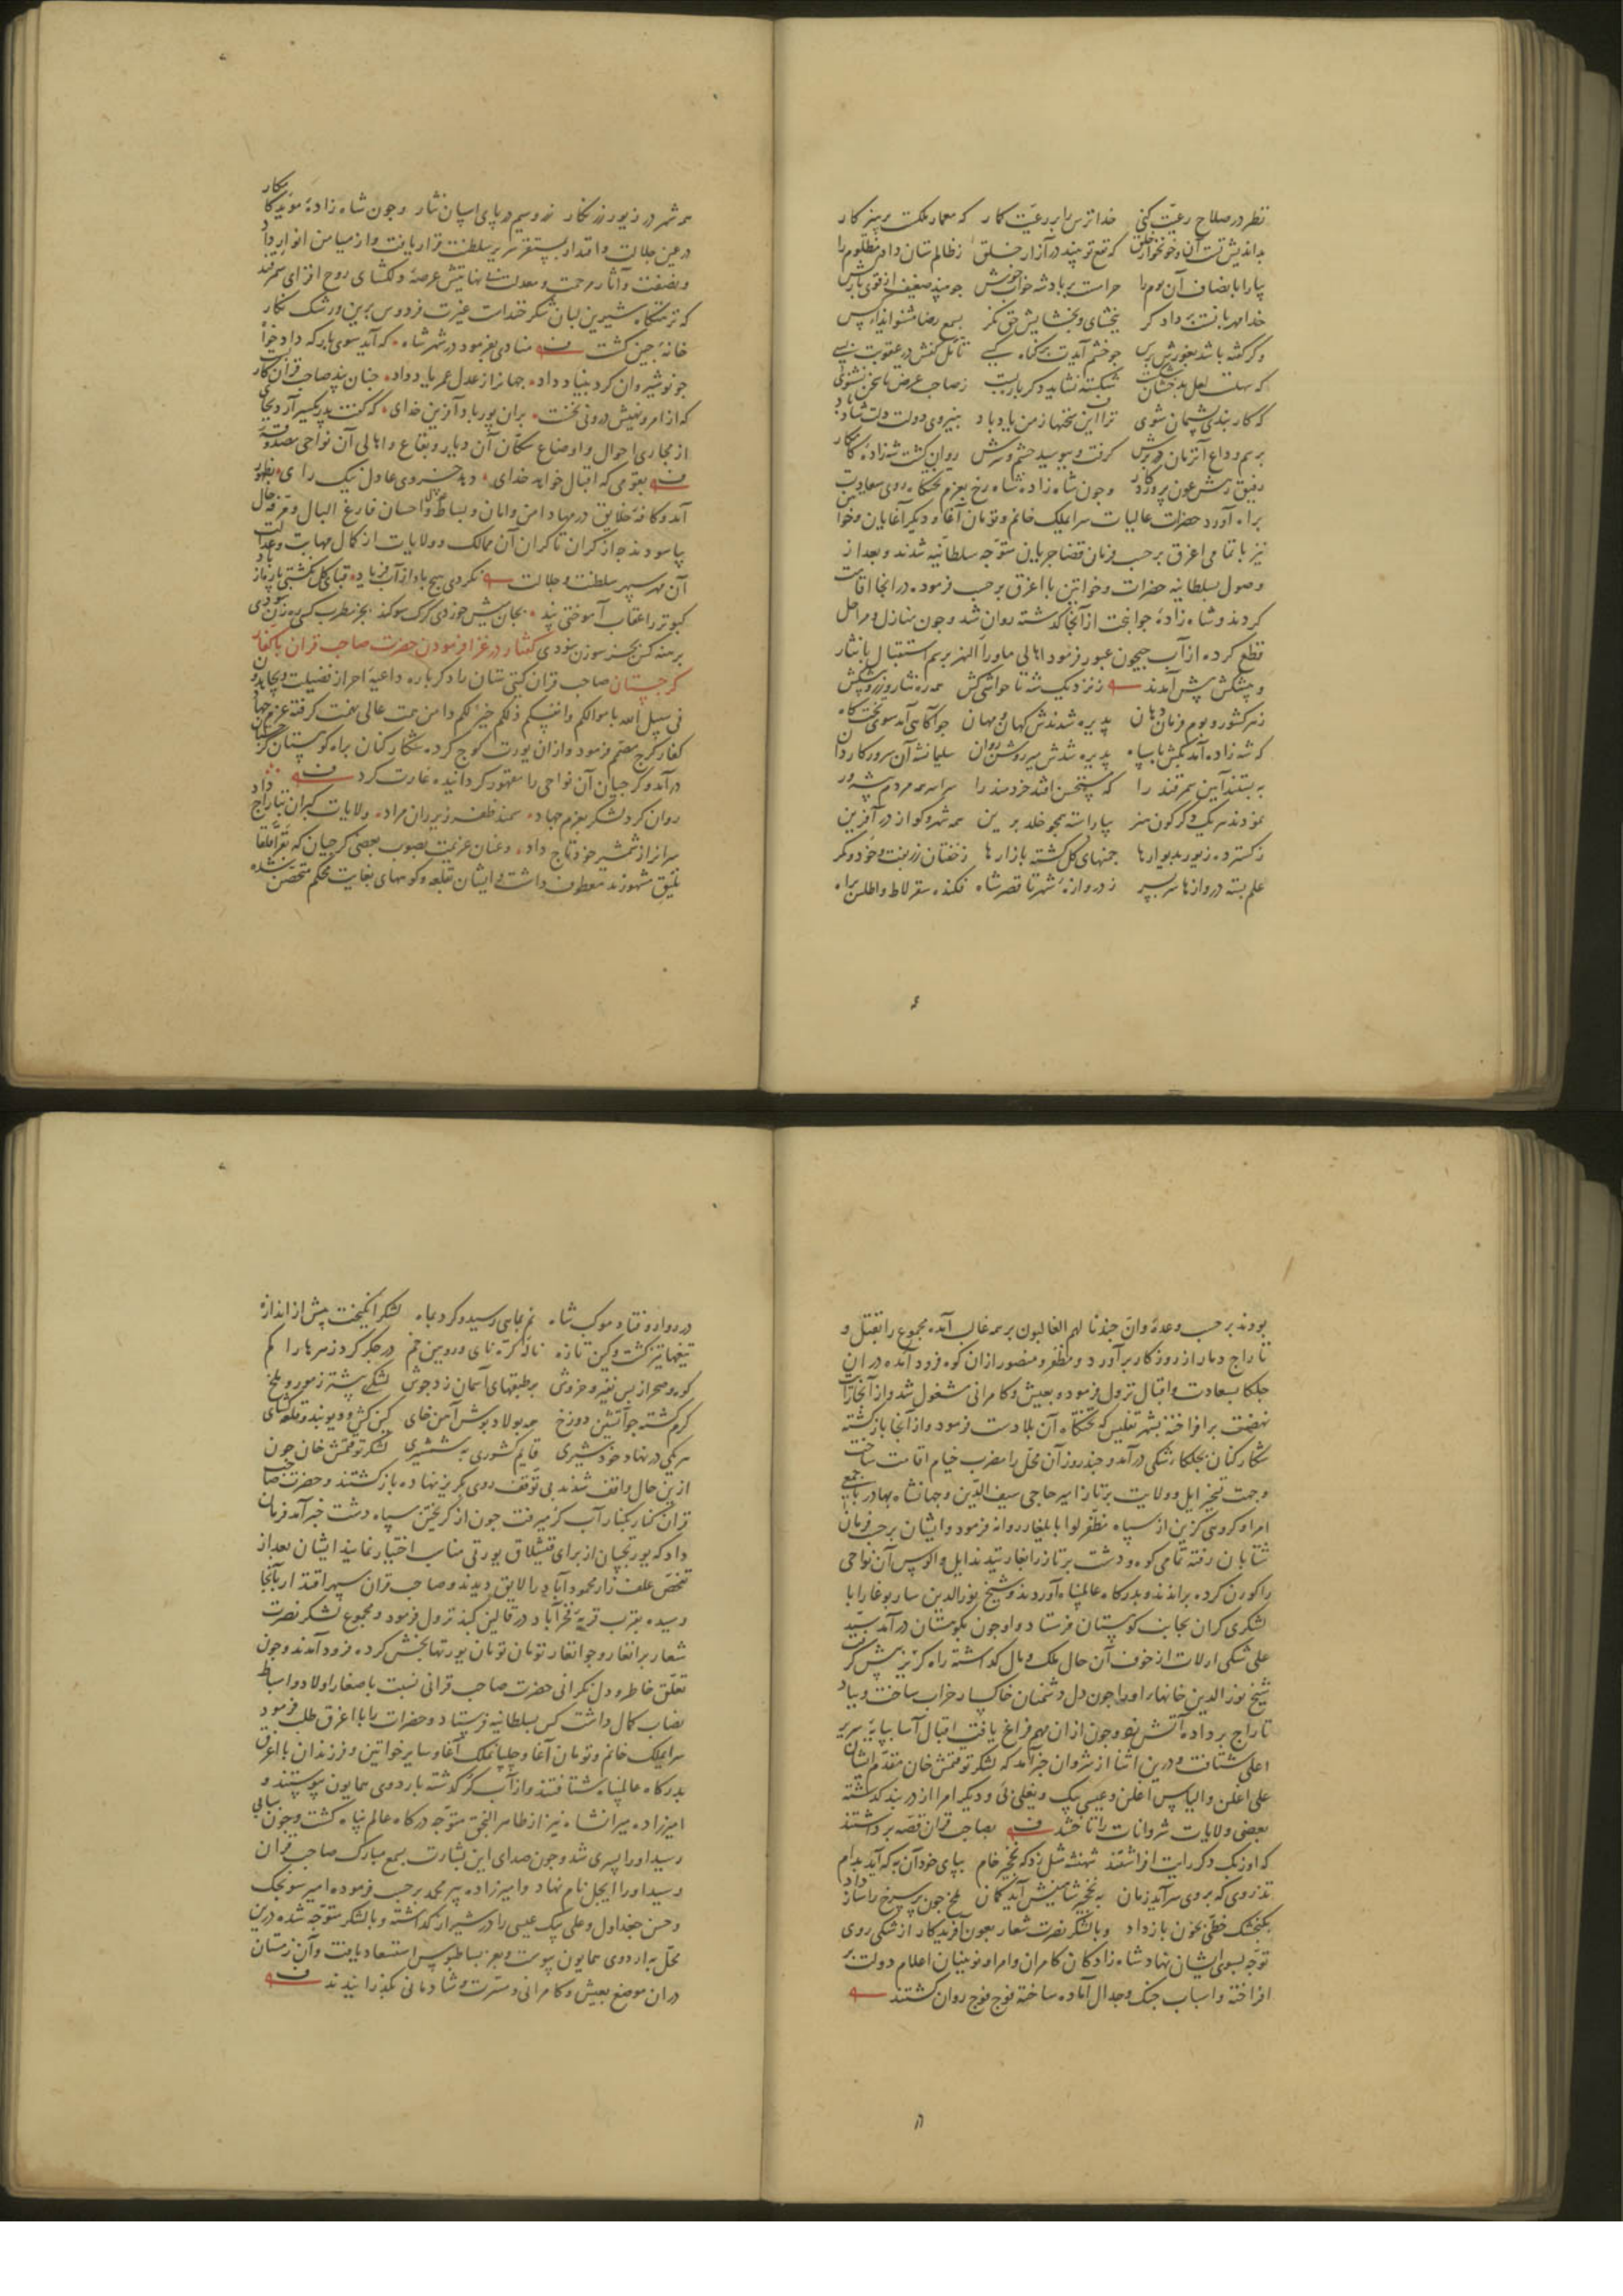 نظر در صلاح رعیت کنی خدا ترس را بر رعیت کار که معمار ملکت پرهیزکار
بداندیش تست آن و خونخوار خلق که نفع تو بیند در آزار خلق ز ظالم ستان داد مظلوم را
بیارا بانصاف آن بوم را حرامست بر پادشه خواب خوش چو بیند ضعیف از قوی بارکش
خدا مهربانست بر دادگر ببخشای و بخشایش حق نگر بسمع رضا مشنو ایذاء کس
وگر گفته باشد بغورش برس چو خشم آیدت بر گناه کسی تأمل کنش در عقوبت بسی
که سهلست لعل بدخشان شکست شکسته نشاید دگرباره بست ز صاحب غرض تا سخن نشنوی
که کار بندی پشیمان شوی ترا این سخنها ز من یاد باد بنیروی دولت دلت شاد باد
برسم وداع آنزمان در برش گرفت و ببوسید چشم و سرش روان گشت شه‌زاده کامکار
رفیق رهش عون پروردگار و چون شاه زاده شاه رخ بعزم تختگاه روی سعادت
براه آورد حضرات عالیات سرایملک خانم و تومان آغا و دیگر آغایان و خواتین
نیز با تمامی اغرق بر حسب فرمان قضا جریان متوجه سلطانیه شدند و بعد از
وصول بسلطانیه حضرات و خواتین با اغرق برحسب فرموده در انجا اقامت
کردند و شاه زاده جوانبخت از آنجا گذشته روان شد و چون منازل و مراحل
قطع کرده از آب جیحون عبور فرمود اهالی ماوراء النهر برسم استقبال با نثار
و پیشکش پیش آمدند ز نزدیک شه تا حواشی کش همه ره نثار و زر و پیشکش
ز هر کشور و بوم فرمان دهان پذیره شدندش کهان و مهان چو آگاهی آمد سوی تخت گاه
که شه زاده آمد بکش با سپاه پذیره شدش میر روشن روان سلیمانشه آن سرور کاردان
به بستند آیین سمرقند را که تحسین افتد خردمند را سراسر همه مردم پیشه ور
نمودند هر یک دگرگون هنر بیاراسته همچو خلد برین همه شهر و کو از در آفرین
ز گسترده زیور بدیوارها چمنهای گل گشته بازارها ز خفتان زربفت و خود و کمر
علم بسته دروازها سر بسر ز دروازه شهر تا قصر شاه فکنده سقرلاط و اطلس براه
همه شهر در زیور زرنگار زر و سیم در پای اسپان نثار و چون شاه زاده مؤید کامکار
در عین جلالت و اقتدار بمستقر سریر سلطنت قرار یافت و از میامن انوار داد
و نصفت و آثار مرحمت و معدلت بی نهایتش عرصه دلگشای روح افزای سمرقند
که نزهتگاه شیرین لبان شکر خنداست غیرت فردوس برین و رشک نگار
خانه چین گشت منادی بفرمود در شهر شاه که آید سوی بارگه دادخواه
چو نوشیروان کرد بنیاد داد جهان از عدل عمر یاد داد چنان پند صاحب قران کار بست
که از امر و نهیش درونی نخست بران پور باد آفرین خدای که گفت پدر یکسر آرد بجای
از مجاری احوال و اوضاع سکان آن دیار و بقاع و اهالی آن نواحی مصدوقه
بقومی که اقبال خواهد خدای دهد خسروی عادل نیک رای بظهور
آمد و کافه خلایق در مهاد امن و امان و بساط عدل و احسان فارغ البال و مرفه حال
بیاسودند چه از کران تا کران آن ممالک و ولایات از کمال مهابت و عدالت
آن مهر سپهر سلطنت و جلالت نکردی هیچ باد از آب فریاد قبای گل نگشتی پاره از باد
کبوتر را عقاب آموختی پند بجان میش خوردی گرگ سوگند بجز مطرب کسی ره زن نبودی
برهنه کن بجز سوزن نبودی گفتار در غزا فرمودن حضرت صاحب قران با کفار
گرجستان صاحب قران گیتی ستان را دگرباره داعیه احراز فضیلت و یجاهدون
فی سبیل الله باموالکم وانفسکم ذلکم خیر لکم دامن همت عالی نهمت گرفته عزم جهاد
کفار گرج مصمم فرمود و از ان یورت کوچ کرده شکار کنان براه کوهستان گرجستان
درآمد و گرجیان آن نواحی را مقهور گردانیده غارت کرد
روان کرد لشکر بعزم جهاد سمند ظفر زیر ران مراد ولایات گبران بتاراج داد
سرانرا ز شمشیر خود تاج داد و عنان عزیمت بصوب بعضی گرجیان که بقراقلقا
نلیق مشهورند معطوف داشت و ایشان بقلعه و کوههای بغایت محکم متحصن شده
بودند بر حسب وعده وان جندنا لهم الغالبون بر همه غالب آمده مجموع را بقتل و
تاراج دمار از روزگار برآورد و مظفر و منصور از ان کوه فرود آمده در ان
جلکا بسعادت و اقبال نزول فرموده بعیش و کامرانی مشغول شد و از آنجا رایت
نهضت برافراخته بشهر تفلیس که تختگاه آن بلادست فرمود و از آنجا بازگشته
شکار کنان بجلکا شکی درآمد و چند روز آن محل را مضرب خیام اقامت ساخت
و جهت تسخیر ایل و ولایت برتاز امیر حاجی سیف الدین و جهانشاه بهادر با جمعی
امرا و گروهی گزین از سپاه مظفر لوا بایلغار روانه فرمود و ایشان برحسب فرمان
شتابان رفته تمامی کوه و دشت برتاز را بغارتیدند ایل و الوس آن نواحی
را کورن کرده براندند و بدرگاه عالمپناه آوردند و شیخ نورالدین ساربوغا را با
لشکری گران بجانب کوهستان فرستاد و او چون بکوهستان درآمد سید
علی شکی ارلات از خوف آن حال ملک و مال گذاشته راه گریز پیش گرفت
شیخ نورالدین خانهاء او را چون دل دشمنان خاکسار خراب ساخت و بباد
تاراج برداده آتش نهاد و چون از ان مهم فراغ یافت اقبال آسا بپایه سریر
اعلی شتافت و درین اثنا از شروان خبر آمد که لشکر توقتمش خان مقدم ایشان
علی اغلن و الیاس اغلن و عیسی بیک و یغلی بی و دیگر امرا از دربند گذشته
بعضی ولایات شروانات را تاختند بصاحب قران قصه برداشتند
که اوزبک دگر رایت افراشتند شهنشه مثل زد که نخجیر خام بپای خود آن به که آید بدام
تذروی که بروی سرآید زمان به نخجیر شاهینش آید گمان ملخ چون پر سرخ را ساز داد
بگنجشک خطی بخون باز داد و با لشکر نصرت شعار بعون آفریدگار از شکی روی
توجه بسوی ایشان نهاد شاه زادگان کامران و امرا و نوینیان اعلام دولت بر
افراخته و اسباب جنگ و جدال آماده ساخته فوج فوج روان گشتند
در روارو فتاد موکب شاه نم بماهی رسید و گرد بماه لشکر انگیخت بیش از اندازه
تیغها تیز گشت و کین تازه ناله کره نای و رویین خم در جگر کرد زهرها را گم
کوه و صحرا ز بس نفیر و خروش بر طبقهای آسمان زد جوش لشکری بیشتر ز مور و ملخ
گرم گشته چو آتشین دوزخ همه پولاد پوش آهن خای کین کش و دیو بند و قلعه گشای
هر یکی در نهاد خود شیری قایم کشوری به شمشیری لشکر توقتمش خان چون
ازین حال واقف شدند بی توقف روی بگریز نهاده باز گشتند و حضرت صاحب
قران کنار بکنار آب کر میرفت چون از گریختن سپاه دشت خبر آمد فرمان
داد که یورتچیان از برای قشلاق یورتی مناسب اختیار نمایند ایشان بعد از
تفحص علف زار محمودآباد را لایق دیدند و صاحب قران سپهر اقتدار بآنجا
رسیده بقرب قریه فخرآباد در قالین گنبد نزول فرمود و مجموع لشکر نصرت
شعار برانغار و جوانغار تومان تومان یورتها بخش کرده فرود آمدند و چون
تعلق خاطر و دل نگرانی حضرت صاحب قرانی نسبت با صغار اولاد و اسباط
نصاب کمال داشت کس بسلطانیه فرستاد و حضرات را با اغرق طلب فرمود
سرایملک خانم و تومان آغا و چلپانملک آغا و سایر خواتین و فرزندان با اغرق
بدرگاه عالمپناه شتافتند و از آب کر گذشته باردوی همایون پیوستند و
امیرزاده میرانشاه نیز از ظاهر النجق متوجه درگاه عالم پناه گشت و چون ببیابی
رسید او را پسری شد و چون صدای این بشارت بسمع مبارک صاحب قران
رسید او را ایجل نام نهاد و امیرزاده پیر محمد برحسب فرموده امیر سونجک
و حسن جغداول و علی بیک عیسی را در شیراز گذاشته و با لشکر متوجه شده درین
محل به اردوی همایون پیوست و بعز بساطبوس استسعاد یافت و آن زمستان
در ان موضع بعیش و کامرانی و مسرت و شادمانی بگذرانیدند